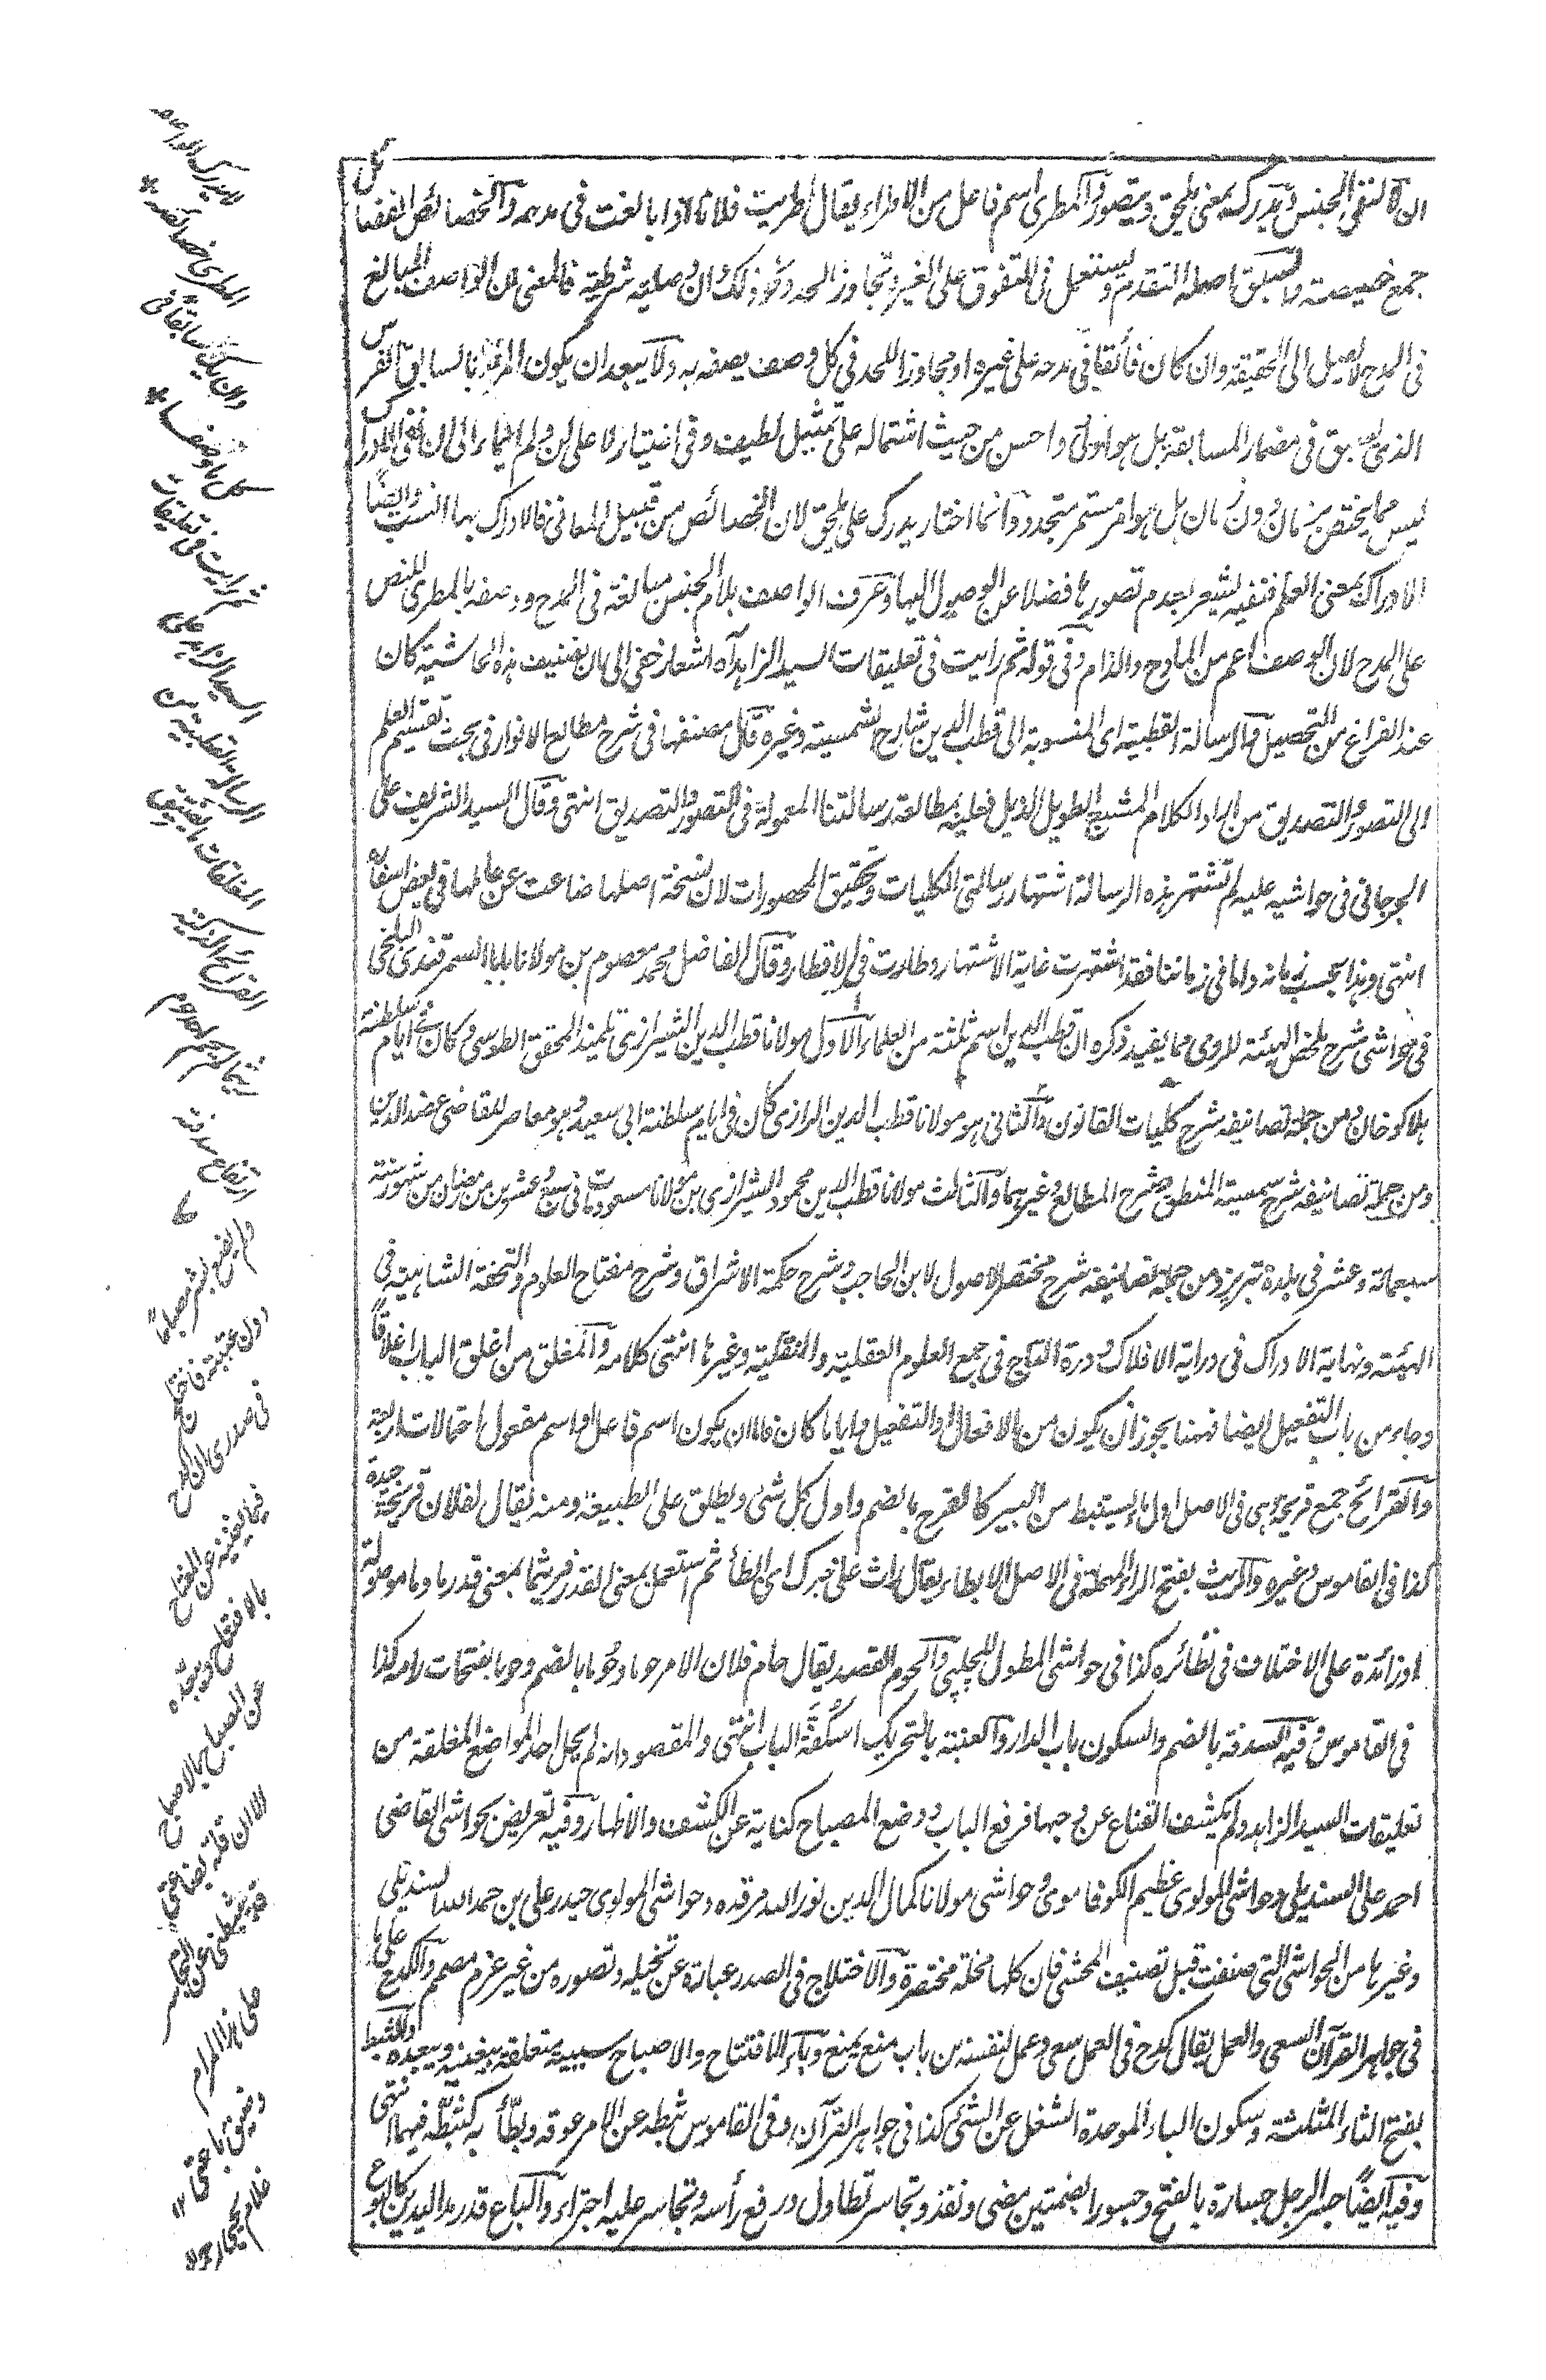 ان لا لنفي الجنس ويدركه بمعنى يلحق ويتصور والمطري اسم فاعل من الاطراء يقال اطريت فلانا اذا بالغت في مدحه والخصائص الفضائل
جمع خصيصة والسبق اصله التقدم ويستعمل في التفوق على الغير وتجاوز الحد ونحو ذلك ان وصلية شرطية فالمعنى ان الواصف المبالغ
في المدح لا يصل الى الحقيقة وان كان فائقا في مدحه على غيره او مجاوزا للحد في كل وصف يصفه به ولا يبعد ان يكون المراد بالسابق الفرس
الذي يسبق في مضمار المسابقة بل هو اولى واحسن من حيث اشتماله على تمثيل لطيف وفي اختيار لا على لن ولم ايماء الى ان نفي الادراك
ليس مما يختص بزمان دون زمان بل هو امر مستمر متجدد وانما اختار يدرك على يلحق لان الخصائص من قبيل المعاني فالادراك بها انسب وايضا
الادراك بمعنى العلم فنفيه يشعر بعدم تصورها فضلا عن الوصول اليها وعرف الواصف بلام الجنس مبالغة في المدح ووصفه بالمطري للنص
على المدح لان الوصف اعم من المادح والذام وفي قوله ثم رايت في تعليقات السيد الزاهد آه اشعار خفي الى ان تصنيف هذه الحاشية كان
عند الفراغ من التحصيل والرسالة القطبية اي المنسوبة الى قطب الدين شارح الشمسية وغيره قال مصنفها في شرح مطالع الانوار في بحث تقسيم العلم
الى التصور والتصديق من اراد الكلام المشبع الطويل الذيل فعليه بمطالعة رسالتنا المعمولة في التصور والتصديق انتهى وقال السيد الشريف علي
الجرجاني في حواشيه عليه لم تشتهر هذه الرسالة اشتهار رسالتي الكليات وتحقيق المحصورات لان نسخة اصلها ضاعت عن حاملها في بعض اسفاره
انتهى وهذا بحسب زمانه واما في زماننا فقد اشتهرت غاية الاشتهار وطارت في الاقطار وقال الفاضل محمد معصوم بن مولانا بابا السمرقندي البلخي
في حواشي شرح ملخص الهيئة للرومي مما يفيد ذكره ان قطب الدين اسم ثلثة من العلماء الاول مولانا قطب الدين الشيرازي تلميذ المحقق الطوسي وكان في ايام سلطنة
هلاكو خان ومن جملة تصانيفه شرح كليات القانون والثاني هو مولانا قطب الدين الرازي كان في ايام سلطنة ابي سعيد وهو معاصر للقاضي عضد الدين
ومن جملة تصانيفه شرح شمسية المنطق وشرح المطالع وغيرهما والثالث مولانا قطب الدين محمود الشيرازي بن مولانا مسعود مات في سبع وعشرين من رمضان من شهور سنة
سبعمائة وعشر في بلدة تبريز ومن جملة تصانيفه شرح مختصر الاصول لابن الحاجب وشرح حكمة الاشراق وشرح مفتاح العلوم والتحفة الشاهية في
الهيئة ونهاية الادراك في دراية الافلاك ودرة التاج في جمع العلوم العقلية والنقلية وغيرها انتهى كلامه والمغلق من اغلق الباب اغلاقا
وجاء من باب التفعيل ايضا فههنا يجوز ان يكون من الافعال او التفعيل وايا ما كان فاما ان يكون اسم فاعل او اسم مفعول احتمالات اربعة
والقرائح جمع قريحة وهي في الاصل اول ماء يستنبط من البير كالقرح بالضم واول كل شئ ويطلق على الطبيعة ومنه يقال لفلان قريحة جيدة
كذا في القاموس وغيره والريث بفتح الراء المهملة في الاصل الابطاء يقال راث على خبرك اي ابطأ ثم استعمل بمعنى القدر فريثما بمعنى قدر ما وما موصولة
او زائدة على الاختلاف في نظائره كذا في حواشي المطول للچلپي والحوم القصد يقال حام فلان الامر حوما وحُوما بالضم وحوما بفتحات رامه كذا
في القاموس وفيه السدفة بالضم والسكون باب الدار والعتبة بالتحريك اُسْكُفَّة الباب انتهى والمقصود انه لم يحل احد المواضع المغلقة من
تعليقات السيد الزاهد ولم يكشف القناع عن وجهها فرفع الباب ووضع المصباح كناية عن الكشف والاظهار وفيه تعريض بحواشي القاضي
احمد علي السنديلي وحواشي المولوي عظيم الكوفاموي وحواشي مولانا كمال الدين نور الله مرقده وحواشي المولوي حيدر علي بن حمد الله السنديلي
وغيرها من الحواشي التي صنفت قبل تصنيف المحشي فان كلها مخلة مختصرة والاختلاج في الصدر عبارة عن تخيله وتصوره من غير عزم مصمم والكدح على ما
في جواهر القرآن السعي والعمل يقال كدح في العمل سعى وعمل لنفسه من باب منع يمنع وباء الافتتاح والاصباح سببية متعلقة بيغنيه ويبعده والثبط
بفتح الثاء المثلثة وسكون الباء الموحدة الشغل عن الشئ كذا في جواهر القرآن وفي القاموس ثبطه عن الامر عوقه وبطأ به كثبّطه فيهما انتهى
وفيه ايضا جسر الرجل جسارة بالفتح وجسورا بضمتين مضى ونفذ وتجاسر تطاول ورفع رأسه وتجاسر عليه اجترأ والباع قدر مد اليدين كالبوع
لا يدرك الواصف
المطري خصائصه *
وان يكن سابقا في
كل ما وصفا *
ثم رايت في تعليقات
السيد الزاهد على
الرسالة القطبية من
المغلقات ما يقتني
القرائح الذكية
ريثما لم يحم لحروم
ارتفاع سدفته
ولم يضع بشر مصباحا
دون عتبته فاختلج
في صدري ان اكدح
فيما يغنيه عن المفتاح
بالافتتاح ويبعده
عن المصباح بالاصباح
الا ان قلة بضاعتي
قد يثبطني عن التجاسر
على هذا المرام
وضيق باعتي